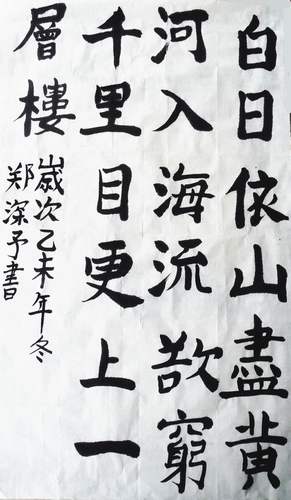 白日依山盡黄
河入海流欲窮
千里目更上一
層樓
嵗次乙未年冬
郑深予書